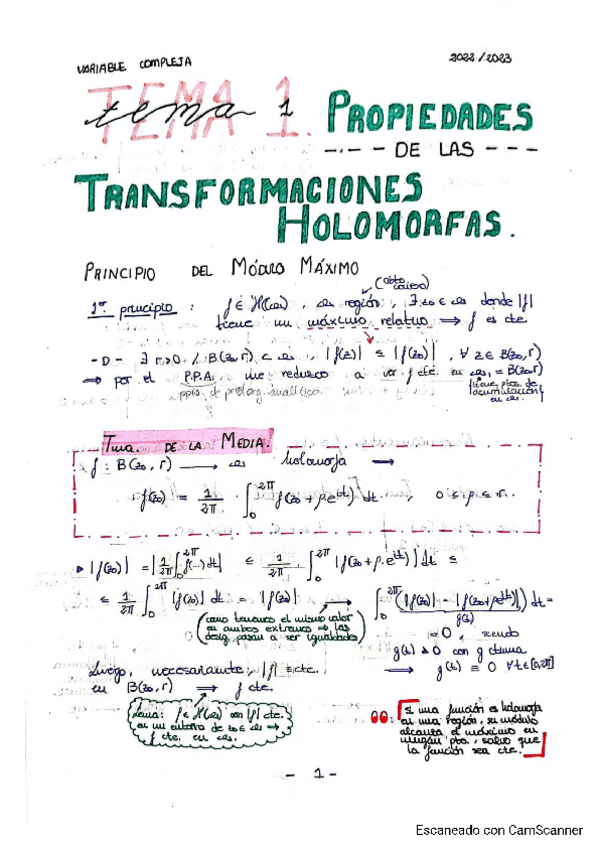 VARIABLE COMPLEJA 2022/2023
TEMA 1.
tema 1 PROPIEDADES
DE LAS
TRANSFORMACIONES
HOLOMORFAS.
PRINCIPIO DEL MÓDULO MÁXIMO
(abto conexo)
1er principio : f ∈ H(ω), ω región, ∃ z₀ ∈ ω donde |f|
tiene un máximo relativo ⟹ f es cte.
-D- ∃ r>0 / B(z₀,r) ⊂ ω, |f(z)| ≤ |f(z₀)|, ∀ z ∈ B(z₀,r)
⟹ por el P.P.A. me reduzco a ver f cte. en ω₁ = B(z₀,r)
ppio. de prolong. analítica
tiene ptos. de
acumulación
en ω.
Tma. DE LA MEDIA.
f : B(z₀, r) ⟶ holomorfa ⟹
f(z₀) = 1/2π · ∫₀^2π f(z₀ + ρe^it) dt, 0 ≤ ρ ≤ r.
▸ |f(z₀)| = |1/2π ∫₀^2π f(...) dt| ≤ 1/2π ∫₀^2π |f(z₀ + ρ·e^it)| dt ≤
≤ 1/2π ∫₀^2π |f(z₀)| dt = |f(z₀)| ⟶ ∫₀^2π (|f(z₀)| - |f(z₀+ρe^it)|) dt =
g(t)
(como tenemos el mismo valor
en ambos extremos ⟹ las
desig. pasan a ser igualdades)
= 0, siendo
g(t) ≥ 0 con g continua
⟹ g(t) ≡ 0 ∀t∈[0,2π]
Luego, necesariamente, |f| ≡ cte.
en B(z₀,r) ⟹ f cte.
Lema: f ∈ H(ω) con |f| cte.
en un entorno de z₀ ∈ ω ⟹
f cte. en ω.
Si una función es holomorfa
en una región, su módulo
alcanza el máximo en
ningún pto., salvo que
la función sea cte.
- 1 -
Escaneado con CamScanner